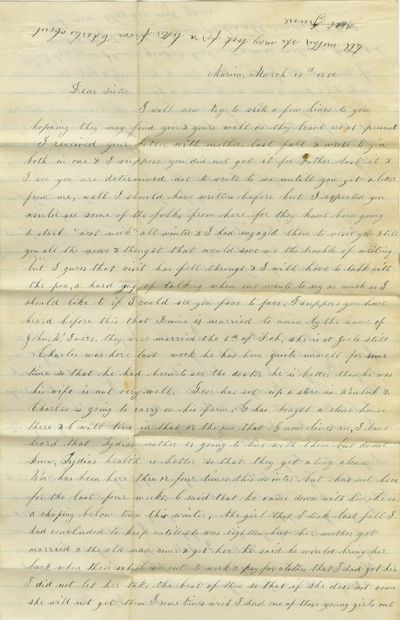 tell mother she may look for a letter from Charles about
next
Marion, March 10th
Dear Sister
I will now try to write a few lines to you
hopeing they may find you & yours well as they leave us at present
I received your letter with mother last fall & wrote to you
both in one & I suppose you did not get it for Mother lost it &
I see you are determined not to write to me untill you get a letter
from me, well I should have written before but I expected you
would see some of the folks from here for they have been going
to start "next week" all winter & I had engaged them to visit you & tell
you all the news & thought that would save me the trouble of writing
but I guess that visit has fell through & I will have to talk with
the pen, a hard way of talking when one wants to say as much as I
should like to if I could see you face to face, I suppose you have
heard before this that is married to a man by the name of
John W. they were married the 6th of Feb, she is at
Charles was here last week he has been quite unwell for some
time so that he had been to see the doctor he is better then he was
his wife is not very well. Geo has set up a store in &
Charles is going to carry on his farm, G has bought a stone house
there & C will live in that or the one that G now lives in, I have
heard that Lydias mother is going to live with them but do not
know, Lydias health is better so that they get along alone
has been here three or four times this winter but has not been
for the last four weeks, C said that he came down with him, he is
a choping below town this winter, the girl that I took last fall I
had concluded to keep untill she was eighteen but her mother got
married & the old man came & got her he said he would bring her
back when their school was out to work & pay for clothes that I had got her
I did not let her take the best of them so that if she does not come
she will not get them I sometimes wish I had one of those young girls out